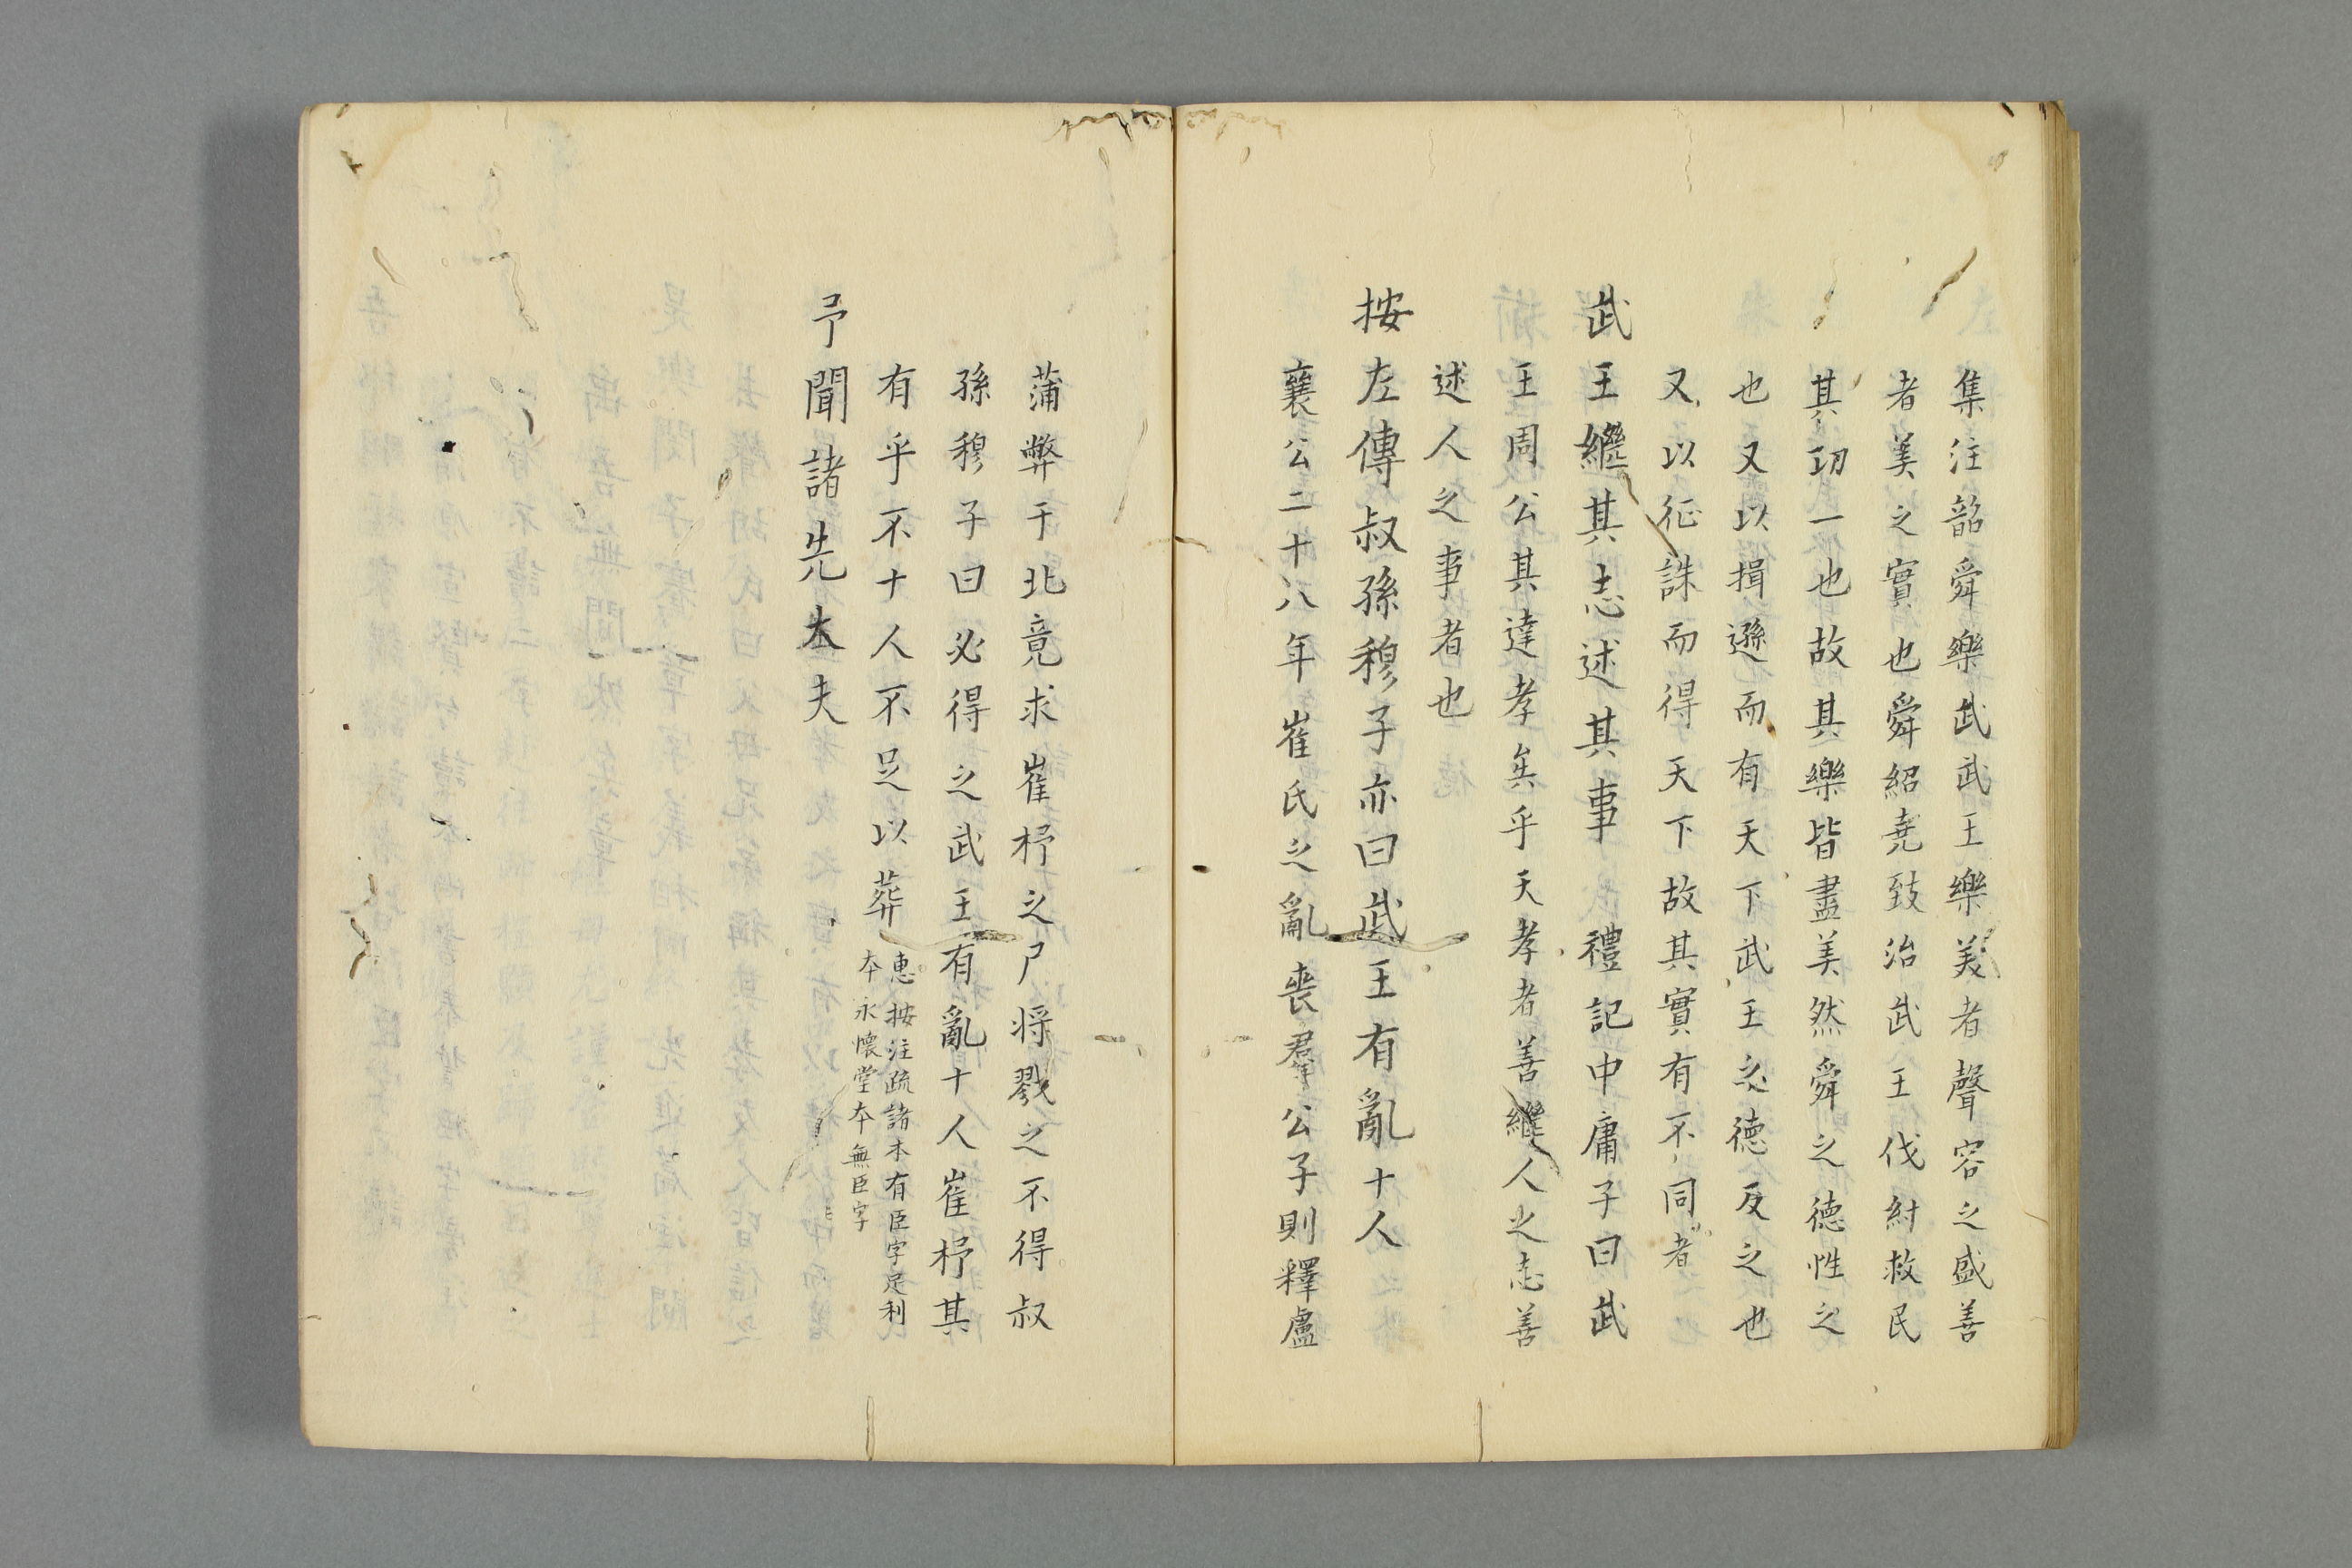 集注韶舜樂武武王樂美者聲容之盛善
者美之實也舜紹堯致治武王伐紂救民
其功一也故其樂皆盡美然舜之德性之
也又以揖遜而有天下武王之德反之也
又以征誅而得天下故其實有不同者
武王繼其志述其事 禮記中庸子曰武
王周公其達孝矣乎夫孝者善繼人之志善
述人之事者也
按左傳叔孫穆子亦曰武王有亂十人
襄公二十八年崔氏之亂喪羣公子則釋盧
蒲弊于北竟求崔杼之尸将戮之不得叔
孫穆子曰必得之武王有亂十人崔杼其
有乎不十人不足以葬
惠按注疏諸本有臣字足利
本永懷堂本無臣字
予聞諸先大夫